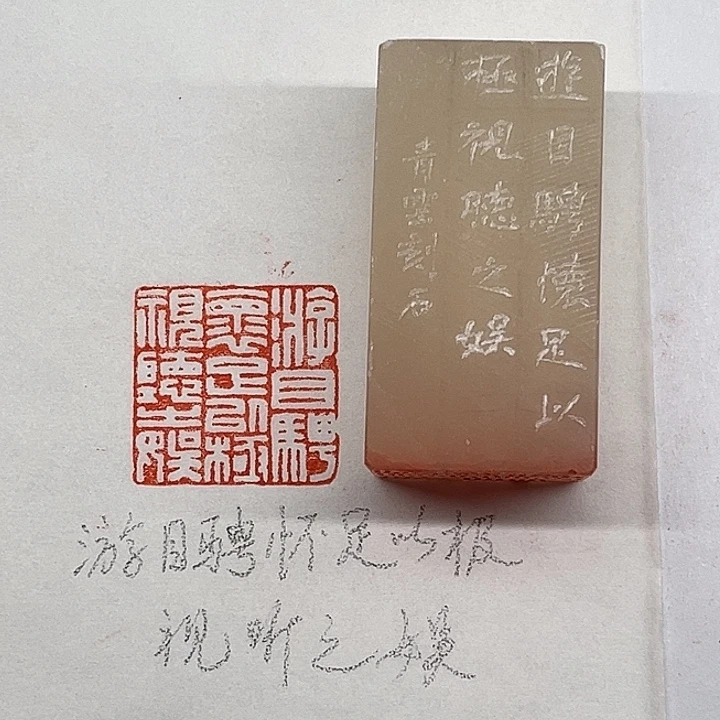 游目騁
褱足以極
視聽之娛
遊目騁懷足以
極視聽之娛
青雲刻石
游目骋怀足以极
视听之娱